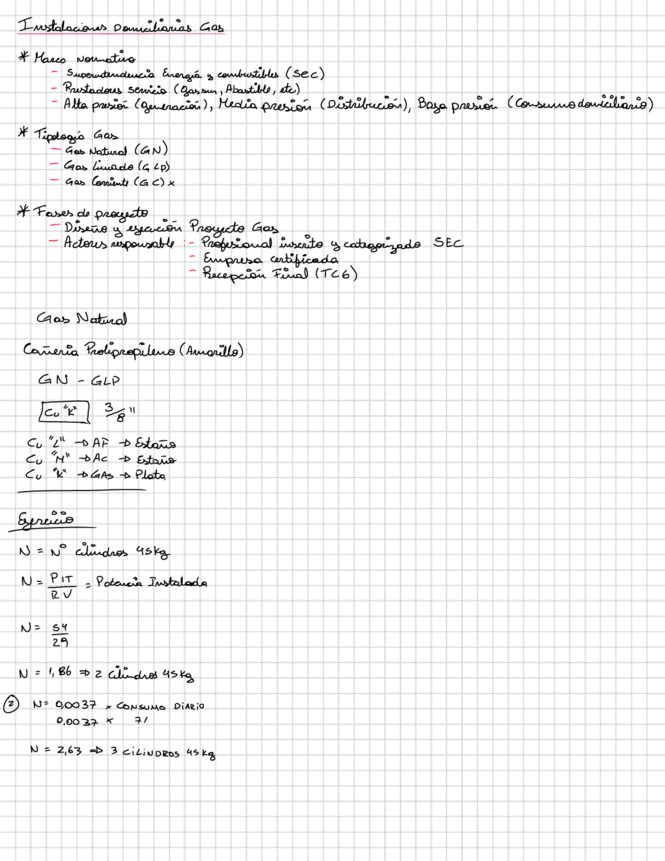 Instalaciones Domiciliarias Gas
* Marco Normativo
- Superintendencia Energía y combustibles (SEC)
- Prestadores servicio (Gassur, Abastible, etc)
- Alta presión (generación), Media presión (Distribución), Baja presión (Consumo domiciliario)
* Tipología Gas
- Gas Natural (GN)
- Gas Licuado (GLP)
- Gas Corriente (GC) x
* Fases de proyecto
- Diseño y ejecución Proyecto Gas
- Actores responsable :- Profesional inscrito y categorizado SEC
- Empresa certificada
- Recepción Final (TC6)
Gas Natural
Cañería Prolipropileno (Amarillo)
GN - GLP
Cu "K" 3/8"
Cu "L" → AF → Estaño
Cu "M" → AC → Estaño
Cu "K" → GAS → Plata
Ejercicio
N = N° cilindros 45kg
N = PIT/RV = Potencia Instalada
N = 54/29
N = 1,86 ⇒ 2 cilindros 45kg
② N = 0,0037 x CONSUMO DIARIO
0,0037 x 71
N = 2,63 ⇒ 3 CILINDROS 45kg